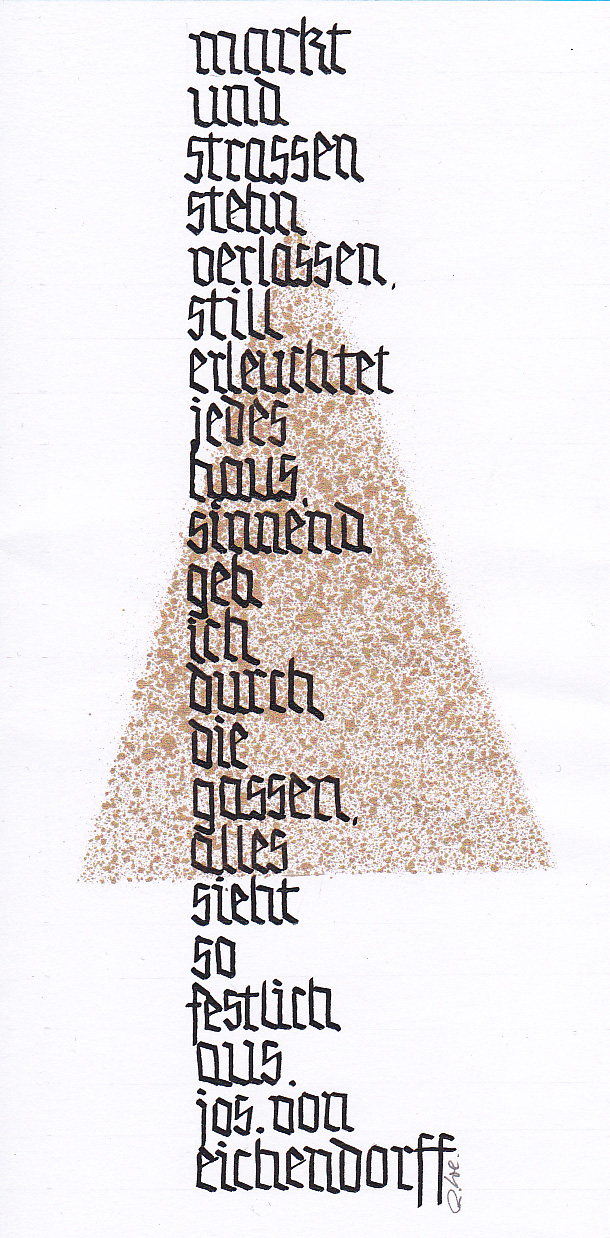 markt
und
strassen
stehn
verlassen,
still
erleuchtet
jedes
haus,
sinnend
geh
ich
durch
die
gassen,
alles
sieht
so
festlich
aus.
jos. von
eichendorff